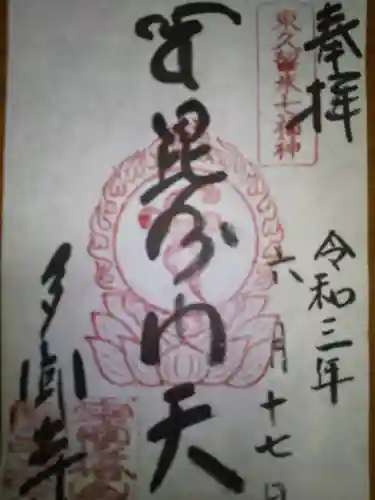 奉拝
東久留米七福神
令和三年
六月十七日
毘沙門天
多聞寺